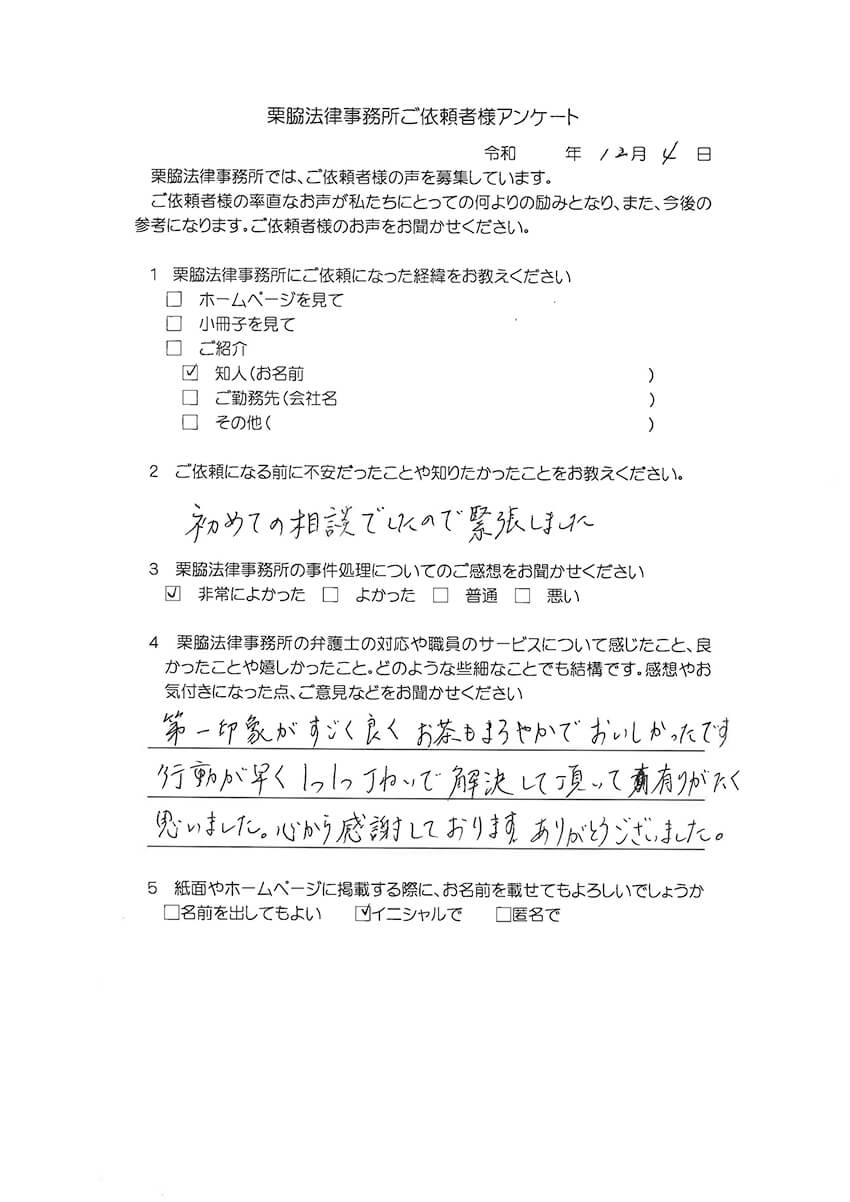 栗脇法律事務所ご依頼者様アンケート
令和 年 12月 4 日
栗脇法律事務所では、ご依頼者様の声を募集しています。
ご依頼者様の率直なお声が私たちにとっての何よりの励みとなり、また、今後の
参考になります。ご依頼者様のお声をお聞かせください。
1 栗脇法律事務所にご依頼になった経緯をお教えください
□ ホームページを見て
□ 小冊子を見て
□ ご紹介
☑ 知人(お名前 )
□ ご勤務先(会社名 )
□ その他( )
2 ご依頼になる前に不安だったことや知りたかったことをお教えください。
初めての相談でしたので緊張しました
3 栗脇法律事務所の事件処理についてのご感想をお聞かせください
☑ 非常によかった □ よかった □ 普通 □ 悪い
4 栗脇法律事務所の弁護士の対応や職員のサービスについて感じたこと、良
かったことや嬉しかったこと。どのような些細なことでも結構です。感想やお
気付きになった点、ご意見などをお聞かせください
第一印象がすごく良く お茶もまろやかで おいしかったです
行動が早く 1つ1つ丁ねいで 解決して頂いて 有りがたく
思いました。心から感謝しております。ありがとうございました。
5 紙面やホームページに掲載する際に、お名前を載せてもよろしいでしょうか
□名前を出してもよい ☑イニシャルで □匿名で